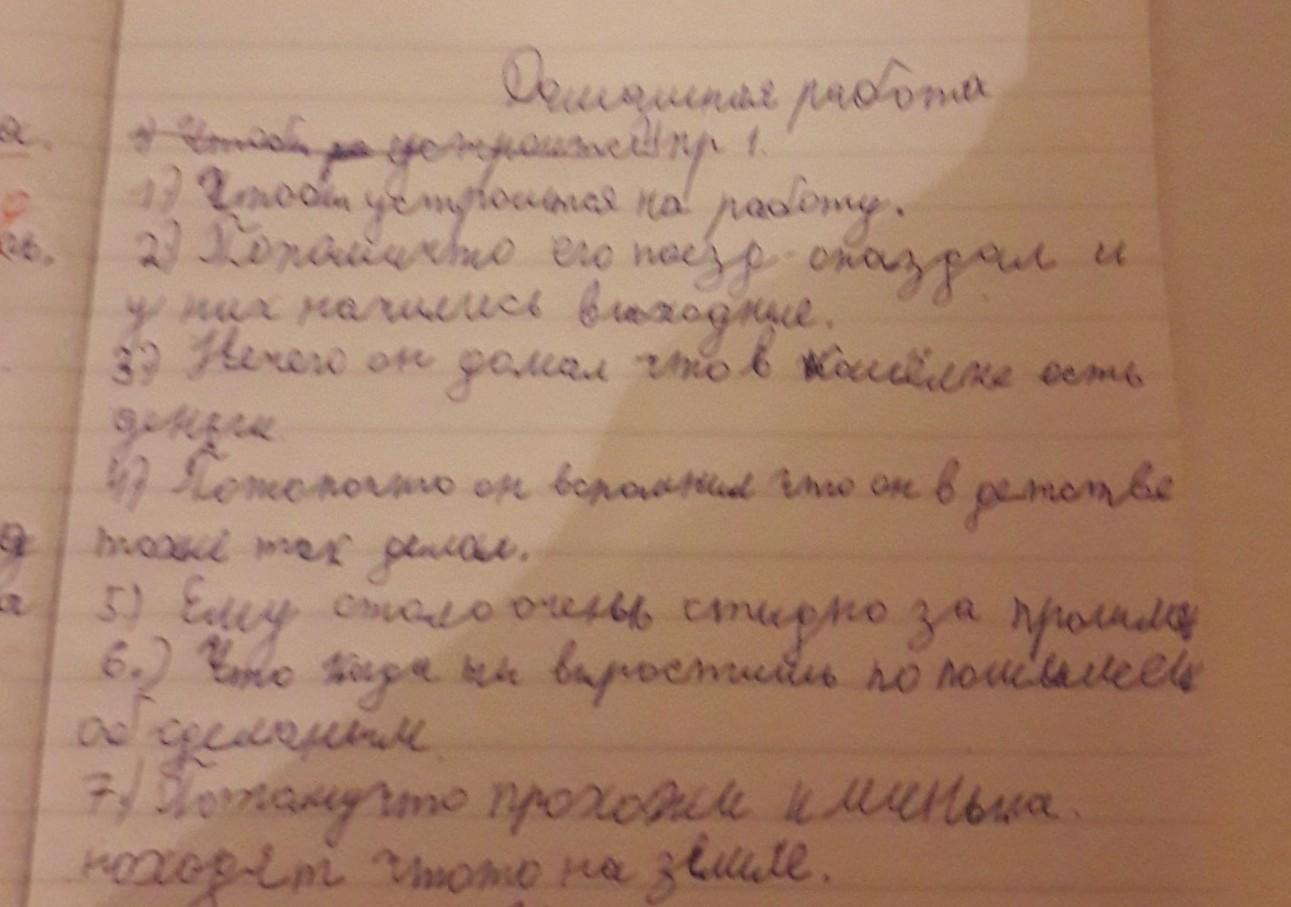 Домашняя работа
Упр 1.
1) Чтобы устроится на работу.
2) Потомучто его поезд опаздал и
у них начились выходные.
3) Нечего он домал что в кошёлке есть
деньги
4) Потомочто он вспомнил что он в детстве
тоже так делал.
5) Ему стало очень стидно за
6.) Что когда ты выростишь по
об сделаным
7.) Потомучто прохожи и
находят чтото на земле.